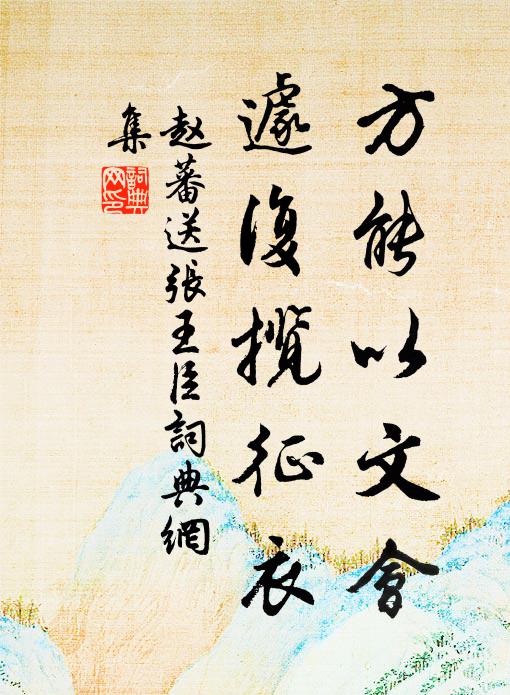 方能以文會
遽復攬征衣
赵蕃送張王臣詞典網
集
詞典
网印